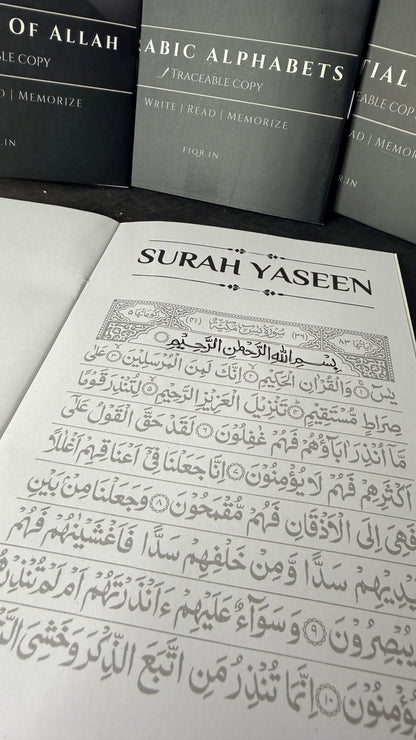 OF ALLAH
BLE COPY
D | MEMORIZE
ABIC ALPHABETS
TRACEABLE COPY
WRITE | READ | MEMORIZE
FIQR.IN
TIAL
EABLE COPY
AD | MEMOR
R.IN
SURAH YASEEN
اٰياتها ٨٣ (٣٦) سُوْرَةُ يٰسٓ مَكِّيَّةٌ (٤١) رکوعاتها ٥
بِسْمِ اللهِ الرَّحْمٰنِ الرَّحِيْمِ
يٰسٓ ۝١ وَالْقُرْاٰنِ الْحَكِيْمِ ۝٢ اِنَّكَ لَمِنَ الْمُرْسَلِيْنَ ۝٣ عَلٰى
صِرَاطٍ مُّسْتَقِيْمٍ ۝٤ تَنْزِيْلَ الْعَزِيْزِ الرَّحِيْمِ ۝٥ لِتُنْذِرَ قَوْمًا
مَّآ اُنْذِرَ اٰبَآؤُهُمْ فَهُمْ غٰفِلُوْنَ ۝٦ لَقَدْ حَقَّ الْقَوْلُ عَلٰٓى
اَكْثَرِهِمْ فَهُمْ لَا يُؤْمِنُوْنَ ۝٧ اِنَّا جَعَلْنَا فِيْٓ اَعْنَاقِهِمْ اَغْلٰلًا
فَهِىَ اِلَى الْاَذْقَانِ فَهُمْ مُّقْمَحُوْنَ ۝٨ وَجَعَلْنَا مِنْۢ بَيْنِ
يْدِيْهِمْ سَدًّا وَّمِنْ خَلْفِهِمْ سَدًّا فَاَغْشَيْنٰهُمْ فَهُمْ
يُبْصِرُوْنَ ۝٩ وَسَوَآءٌ عَلَيْهِمْ ءَاَنْذَرْتَهُمْ اَمْ لَمْ تُنْذِرْهُ
ؤْمِنُوْنَ ۝١٠ اِنَّمَا تُنْذِرُ مَنِ اتَّبَعَ الذِّكْرَ وَخَشِىَ